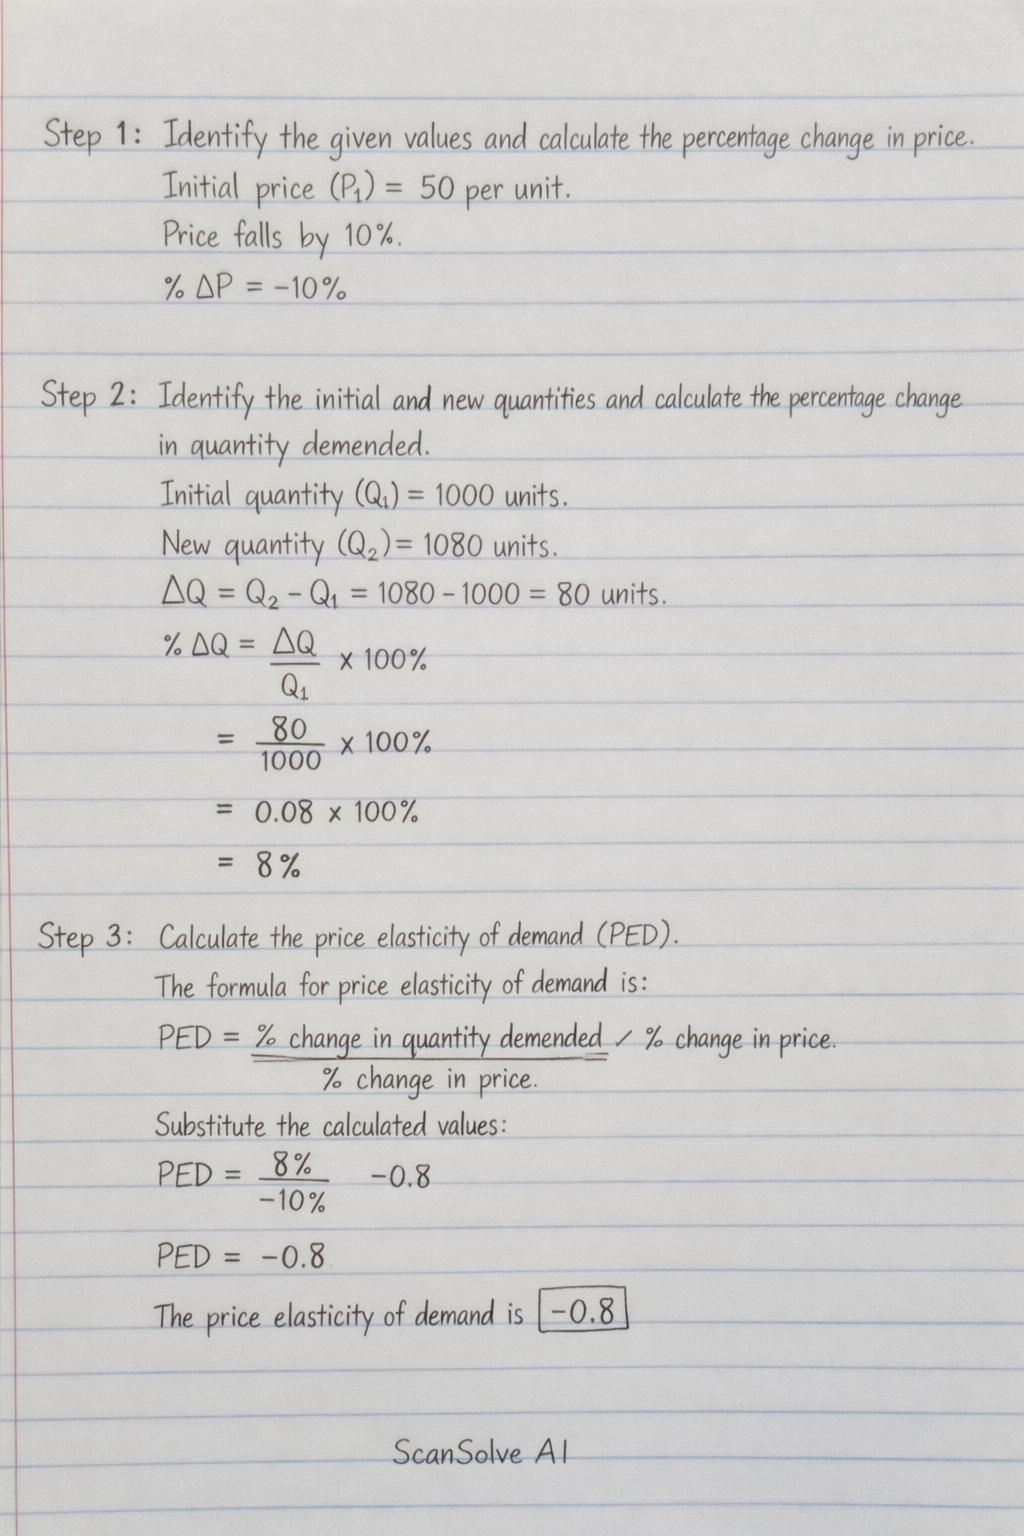 Step 1: Identify the given values and calculate the percentage change in price.
Initial price (P₁) = 50 per unit.
Price falls by 10%.
% ΔP = -10%
Step 2: Identify the initial and new quantities and calculate the percentage change
in quantity demended.
Initial quantity (Q₁) = 1000 units.
New quantity (Q₂) = 1080 units.
ΔQ = Q₂ - Q₁ = 1080 - 1000 = 80 units.
% ΔQ = ΔQ / Q₁ x 100%
= 80 / 1000 x 100%
= 0.08 x 100%
= 8%
Step 3: Calculate the price elasticity of demand (PED).
The formula for price elasticity of demand is:
PED = % change in quantity demended / % change in price.
% change in price.
Substitute the calculated values:
PED = 8% / -10% -0.8
PED = -0.8
The price elasticity of demand is -0.8
ScanSolve AI